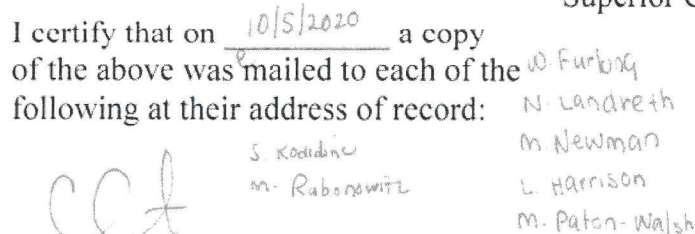 Superior
I certify that on 10/5/2020 a copy
e
of the above was mailed to each of the
following at their address of record:
W. Furlong
N. Landreth
M. Newman
L. Harrison
M. Paton-Walsh
S.
M. Rabonowitz